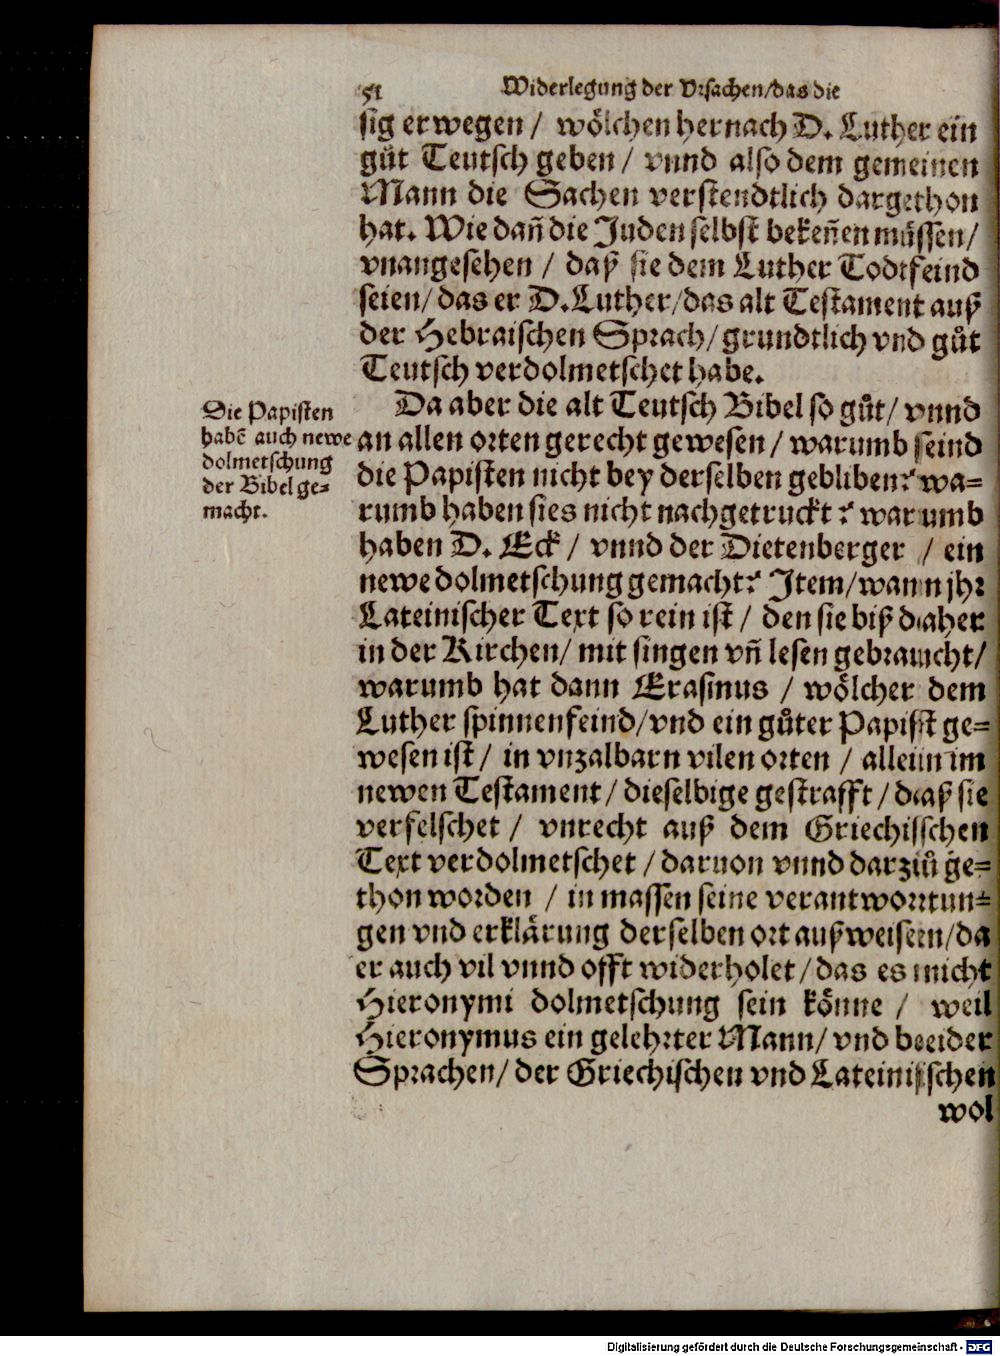 51
Widerlegung der Vrsachen/das die
sig erwegen / wölchen hernach D. Luther ein
gůt Teutsch geben / vnnd also dem gemeinen
Mann die Sachen verstendtlich dargethon
hat. Wie dañ die Juden selbst bekeñen müssen/
vnangesehen / daß sie dem Luther Todtfeind
seien/das er D.Luther/das alt Testament auß
der Hebraischen Sprach/grundtlich vnd gůt
Teutsch verdolmetschet habe.
Da aber die alt Teutsch Bibel so gůt/ vnnd
an allen orten gerecht gewesen / warumb seind
die Papisten nicht bey derselben gebliben? wa=
rumb haben sies nicht nachgetruckt ? warumb
haben D. Eck / vnnd der Dietenberger / ein
newe dolmetschung gemacht? Item/wann jhr
Lateinischer Text so rein ist / den sie biß daher
in der Kirchen/ mit singen vñ lesen gebraucht/
warumb hat dann Erasmus / wölcher dem
Luther spinnenfeind/vnd ein gůter Papist ge=
wesen ist / in vnzalbarn vilen orten / allein im
newen Testament / dieselbige gestrafft / daß sie
verfelschet / vnrecht auß dem Griechischen
Text verdolmetschet / daruon vnnd darzů ge=
thon worden / in massen seine verantwortun=
gen vnd erklärung derselben ort außweisen/da
er auch vil vnnd offt widerholet / das es nicht
Hieronymi dolmetschung sein könne / weil
Hieronymus ein gelehrter Mann/ vnd beeider
Sprachen/ der Griechischen vnd Lateinischen
wol
Die Papisten
habē auch newe
dolmetschung
der Bibel ge=
macht.
Digitalisierung gefördert durch die Deutsche Forschungsgemeinschaft - DFG